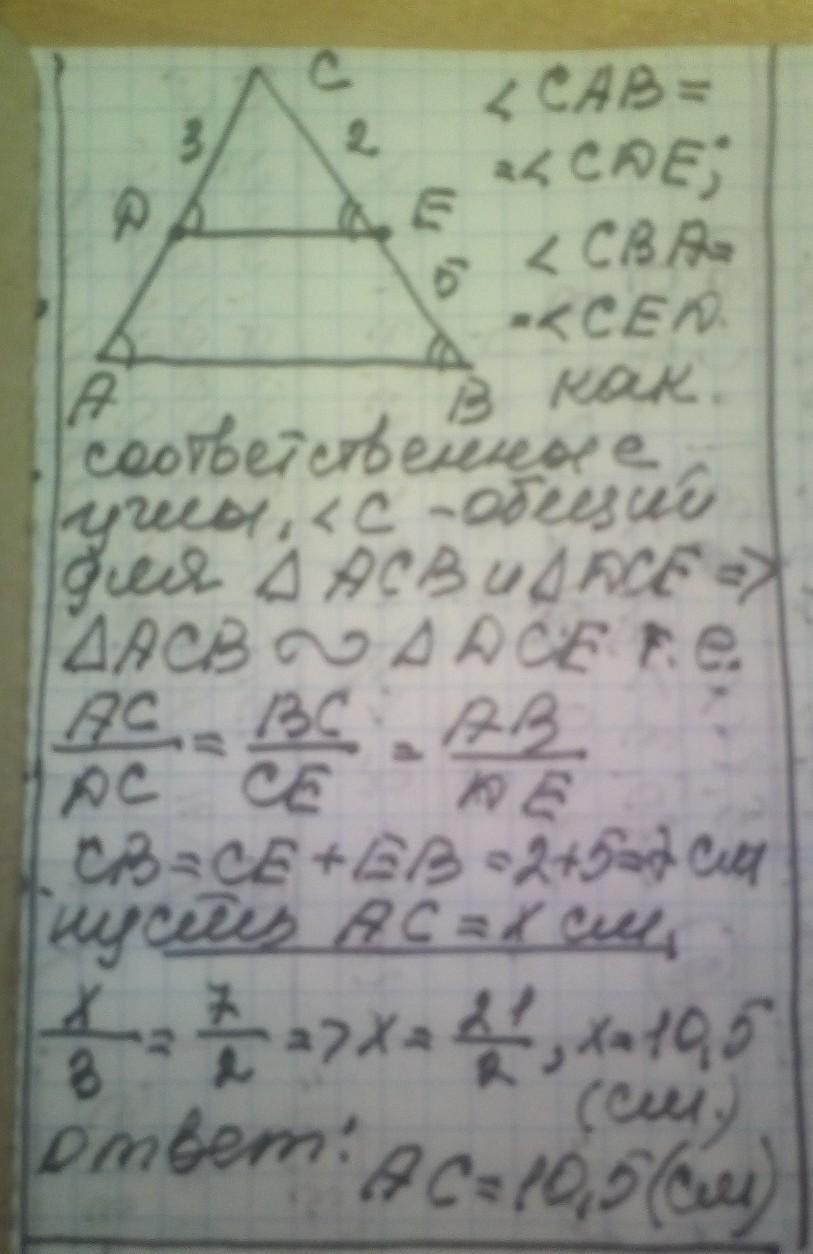 C
3
2
D
E
5
A
B
< CAB =
= < CDE;
< CBA =
= < CED.
как.
соответственные
углы, < C - общий
для Δ ACB и Δ DCE =>
Δ ACB ∾ Δ DCE т. е.
AC/DC = BC/CE = AB/DE
CB = CE + EB = 2+5=7 см
пусть AC = x см,
x/3 = 7/2 => x = 21/2, x = 10,5
(см.)
Ответ: AC = 10,5 (см)